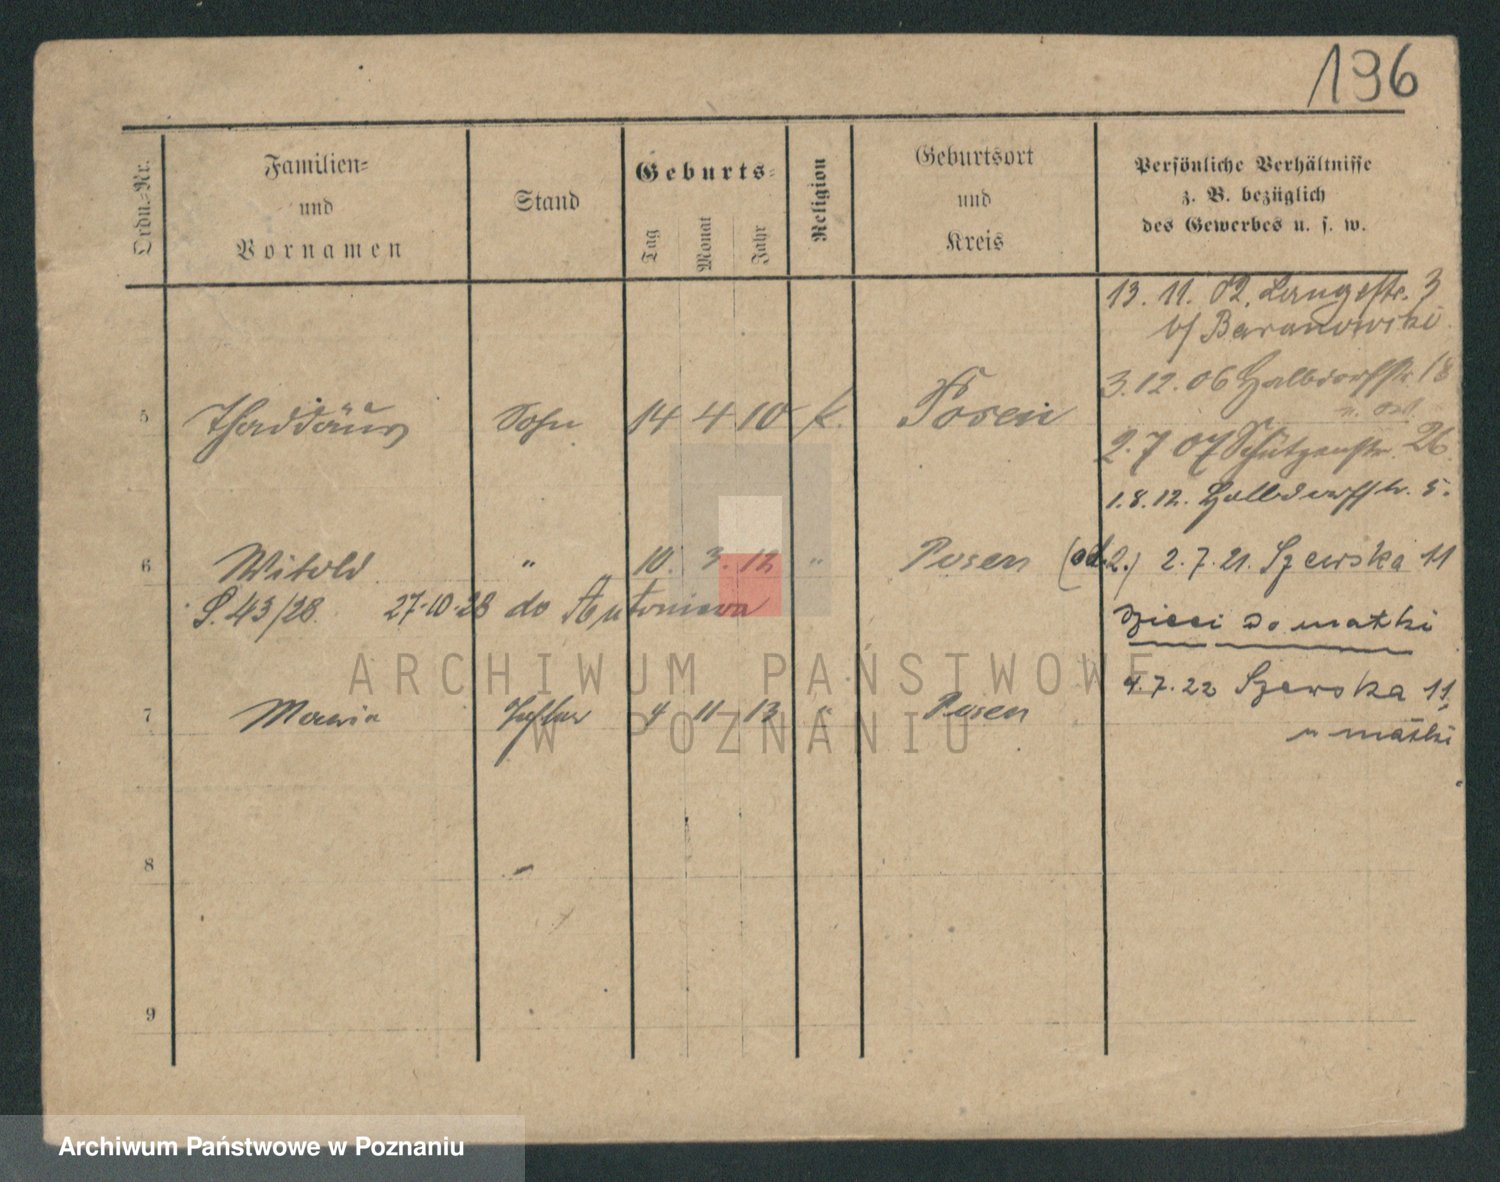 196
Ordn.-Nr.
Familien-
und
Vornamen
Stand
Geburts-
Tag
Monat
Jahr
Religion
Geburtsort
und
Kreis
Persönliche Verhältnisse
z. B. bezüglich
des Gewerbes u. s. w.
13. 11. 02. Langestr. 3
b/ Baranowski
3.12.06 Halbdorfstr. 18
5 Thaddäus Sohn 14 4 10 k. Posen
2.7 07 Schützenstr. 26
1.8.12. Halbdorfstr. 5.
6 Witold " 10. 3. 12 " Posen (od. 2.) 2.7.21. Szewska 11
S. 43/28. 27.10.28 do Antonina
dzieci do matki
4.7.22 Szewska 11
u matki
7 Maria Tochter 4 11 13 " Posen
8
9
ARCHIWUM PAŃSTWOWE
W POZNANIU
Archiwum Państwowe w Poznaniu